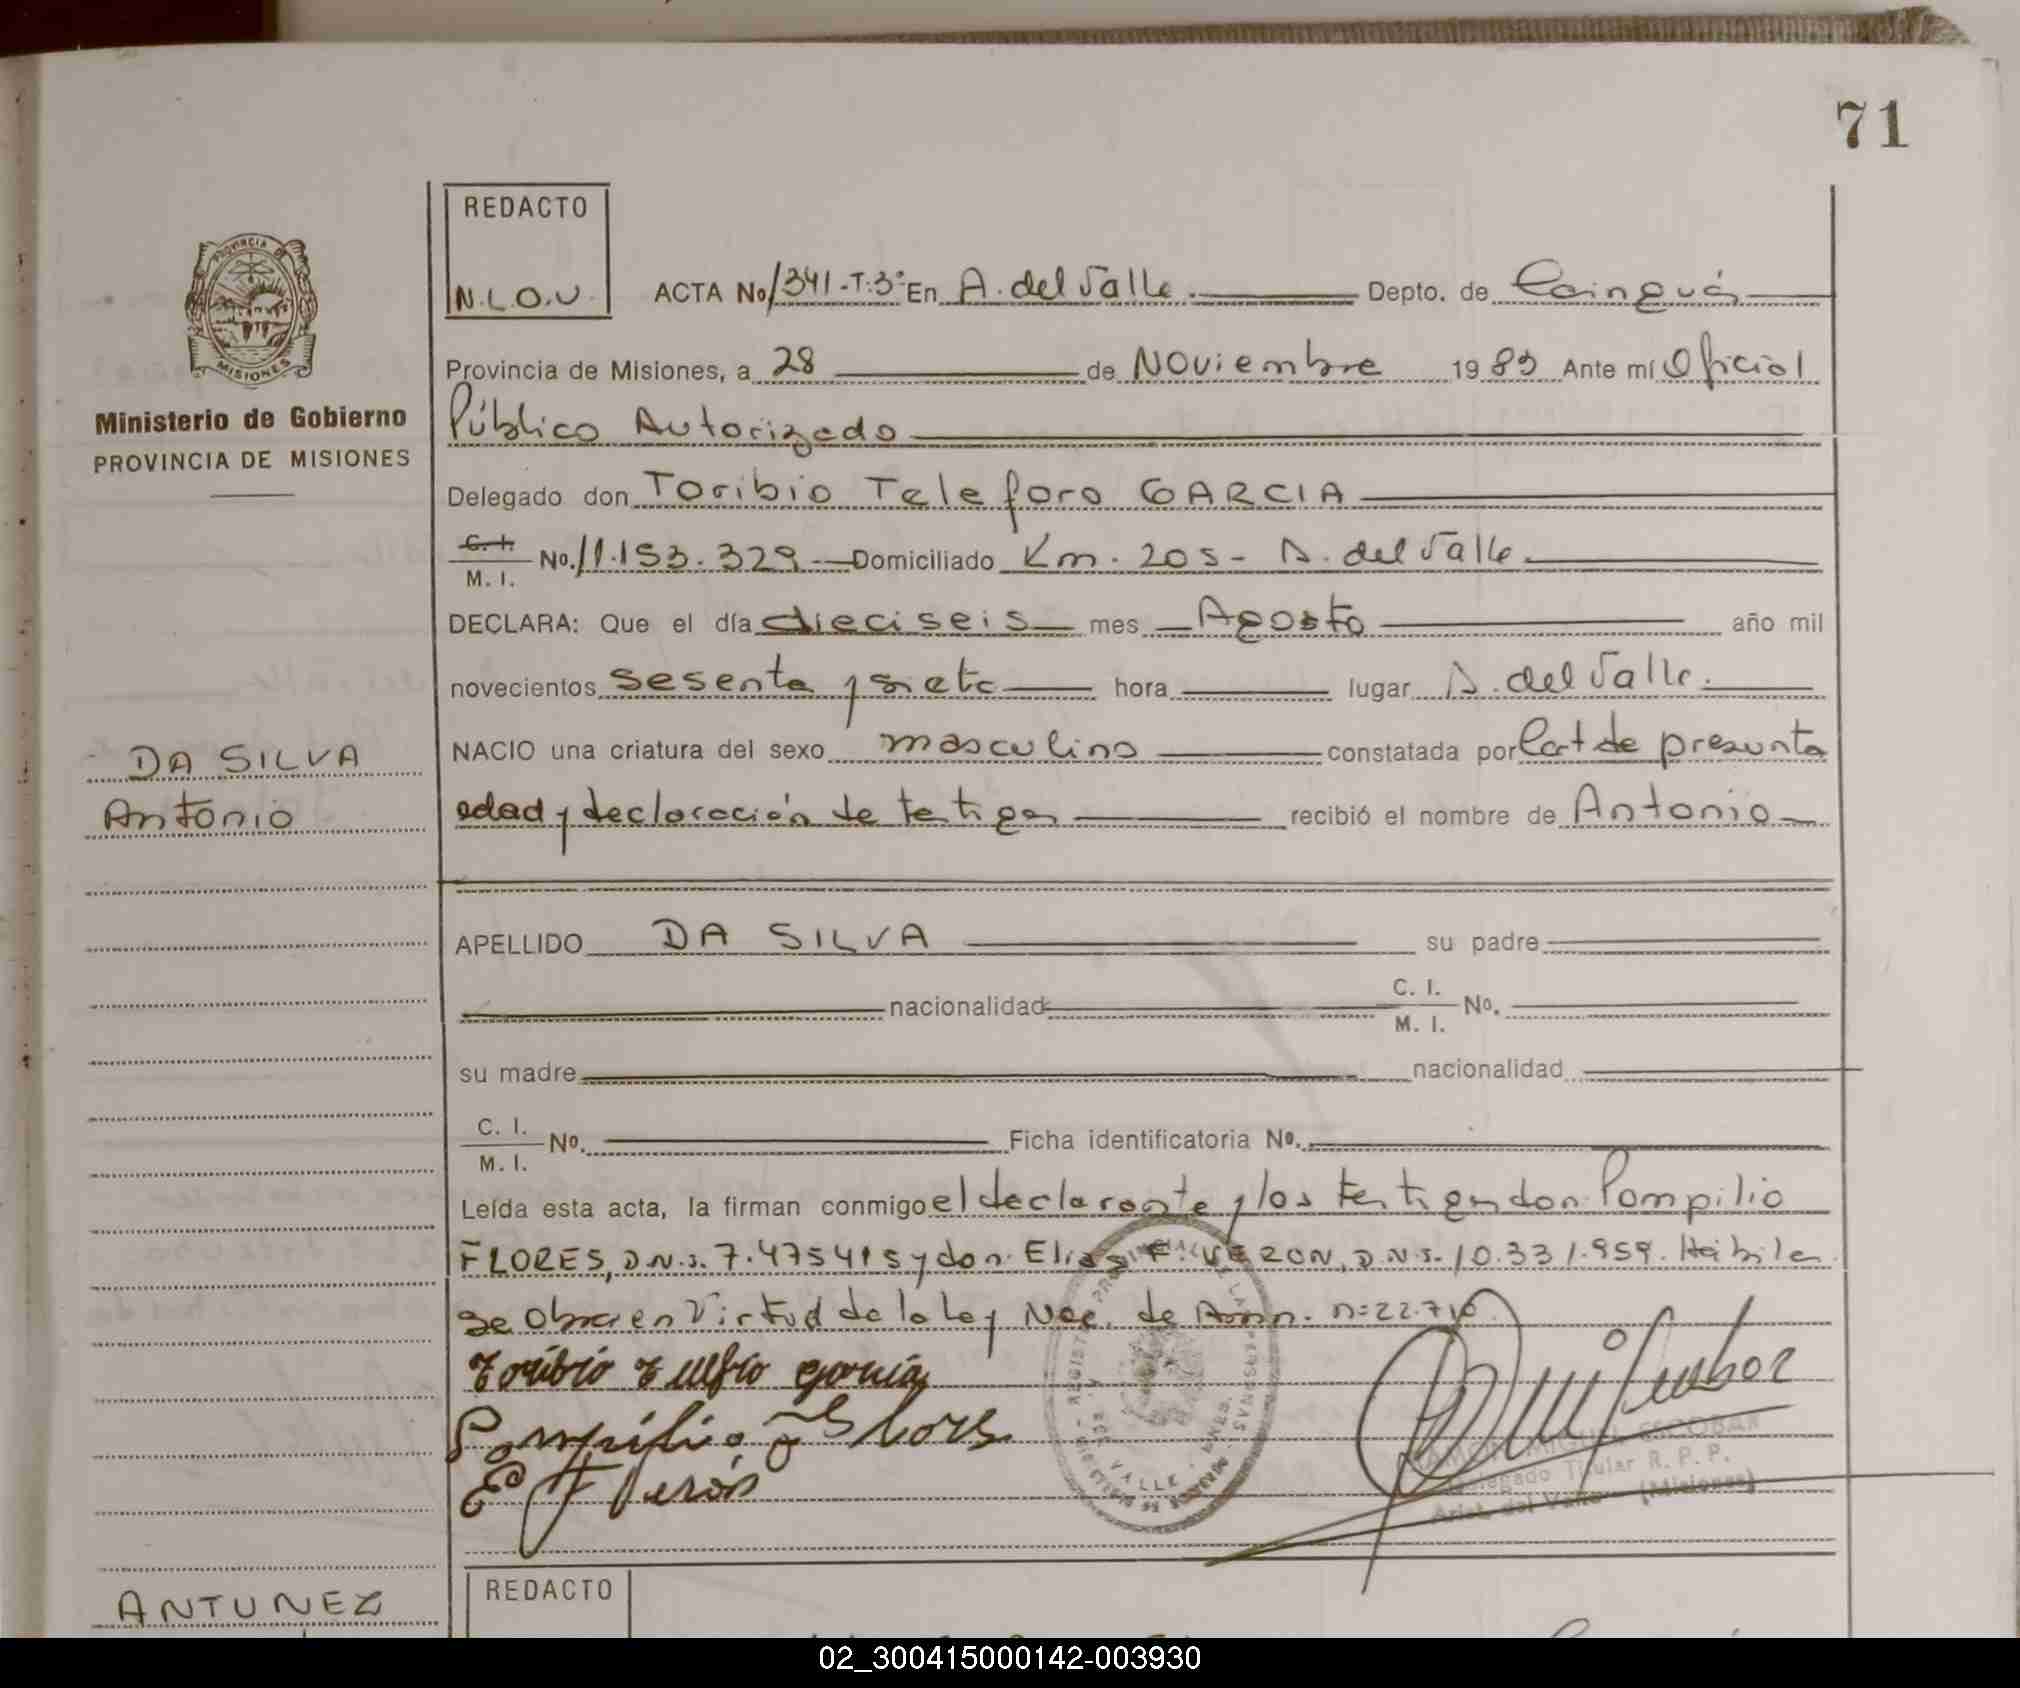 71
REDACTO
N.L.O.U.
ACTA No 1341-T:3° En A. del Valle. Depto. de Cainguás
Provincia de Misiones, a 28 de Noviembre 1983 Ante mí Oficial
Público Autorizado
Delegado don Toribio Teleforo GARCIA
C. I. / M. I. No. 11.153.329 Domiciliado Km. 205- A. del Valle
DECLARA: Que el día dieciseis mes Agosto año mil
novecientos sesenta y siete hora lugar A. del Valle.
NACIO una criatura del sexo masculino constatada por Cert de presunta
edad y declaración de testigos recibió el nombre de Antonio
APELLIDO DA SILVA su padre
nacionalidad C. I. / M. I. No.
su madre nacionalidad
C. I. / M. I. No. Ficha identificatoria No.
Leída esta acta, la firman conmigo el declarante y los testigos don: Pompilio
FLORES, D.N.I. 7.475415 y don: Elias F. VERON, D.N.I. 10.331.959. Habiles
Se Obra en Virtud de la Ley Nac. de Amn. n=22.710
Toribio Telefro garcia
Pompilio Flores
E F Verón
REGISTRO PROVINCIAL DE LAS PERSONAS
A. DEL VALLE - MNES.
RAMON MIGUEL ESCOBAR
Delegado Titular R. P. P.
Arist. del Valle (Misiones)
PROVINCIA DE
MISIONES
Ministerio de Gobierno
PROVINCIA DE MISIONES
DA SILVA
Antonio
ANTUNEZ
REDACTO
02_300415000142-003930